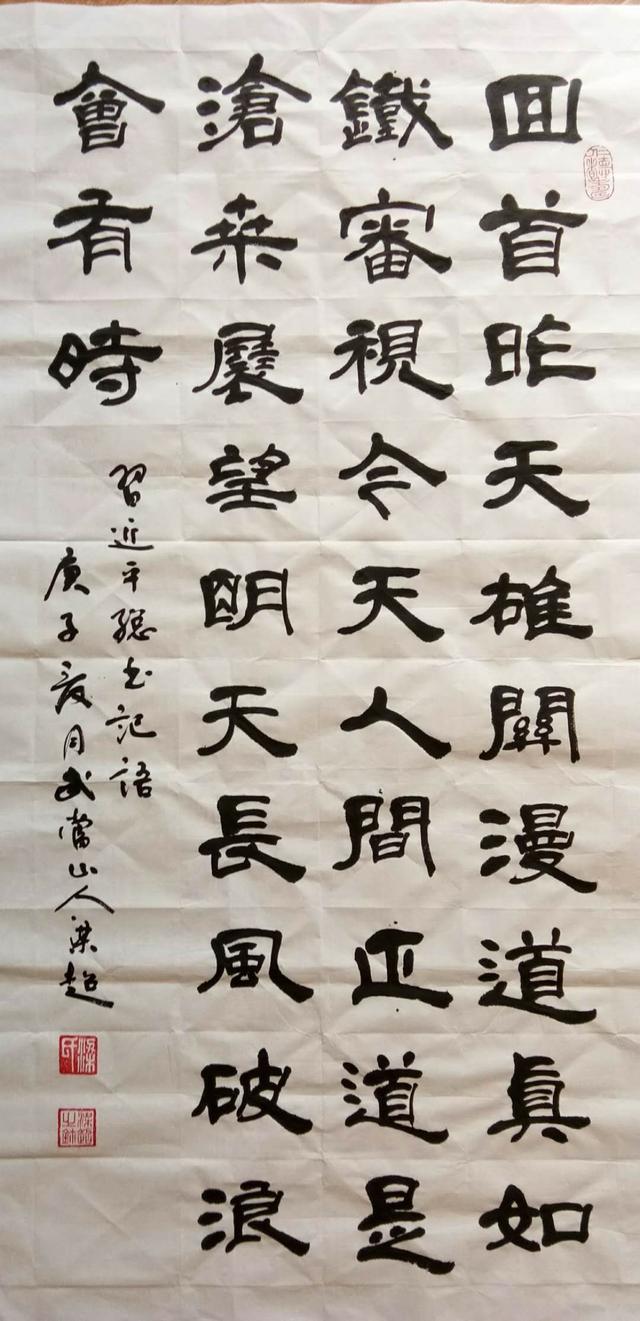 回首昨天雄關漫道真如
鐵審視今天人間正道是
滄桒展望明天長風破浪
會有時
習近平總书記語
庚子夏月武當山人梁超
梁氏